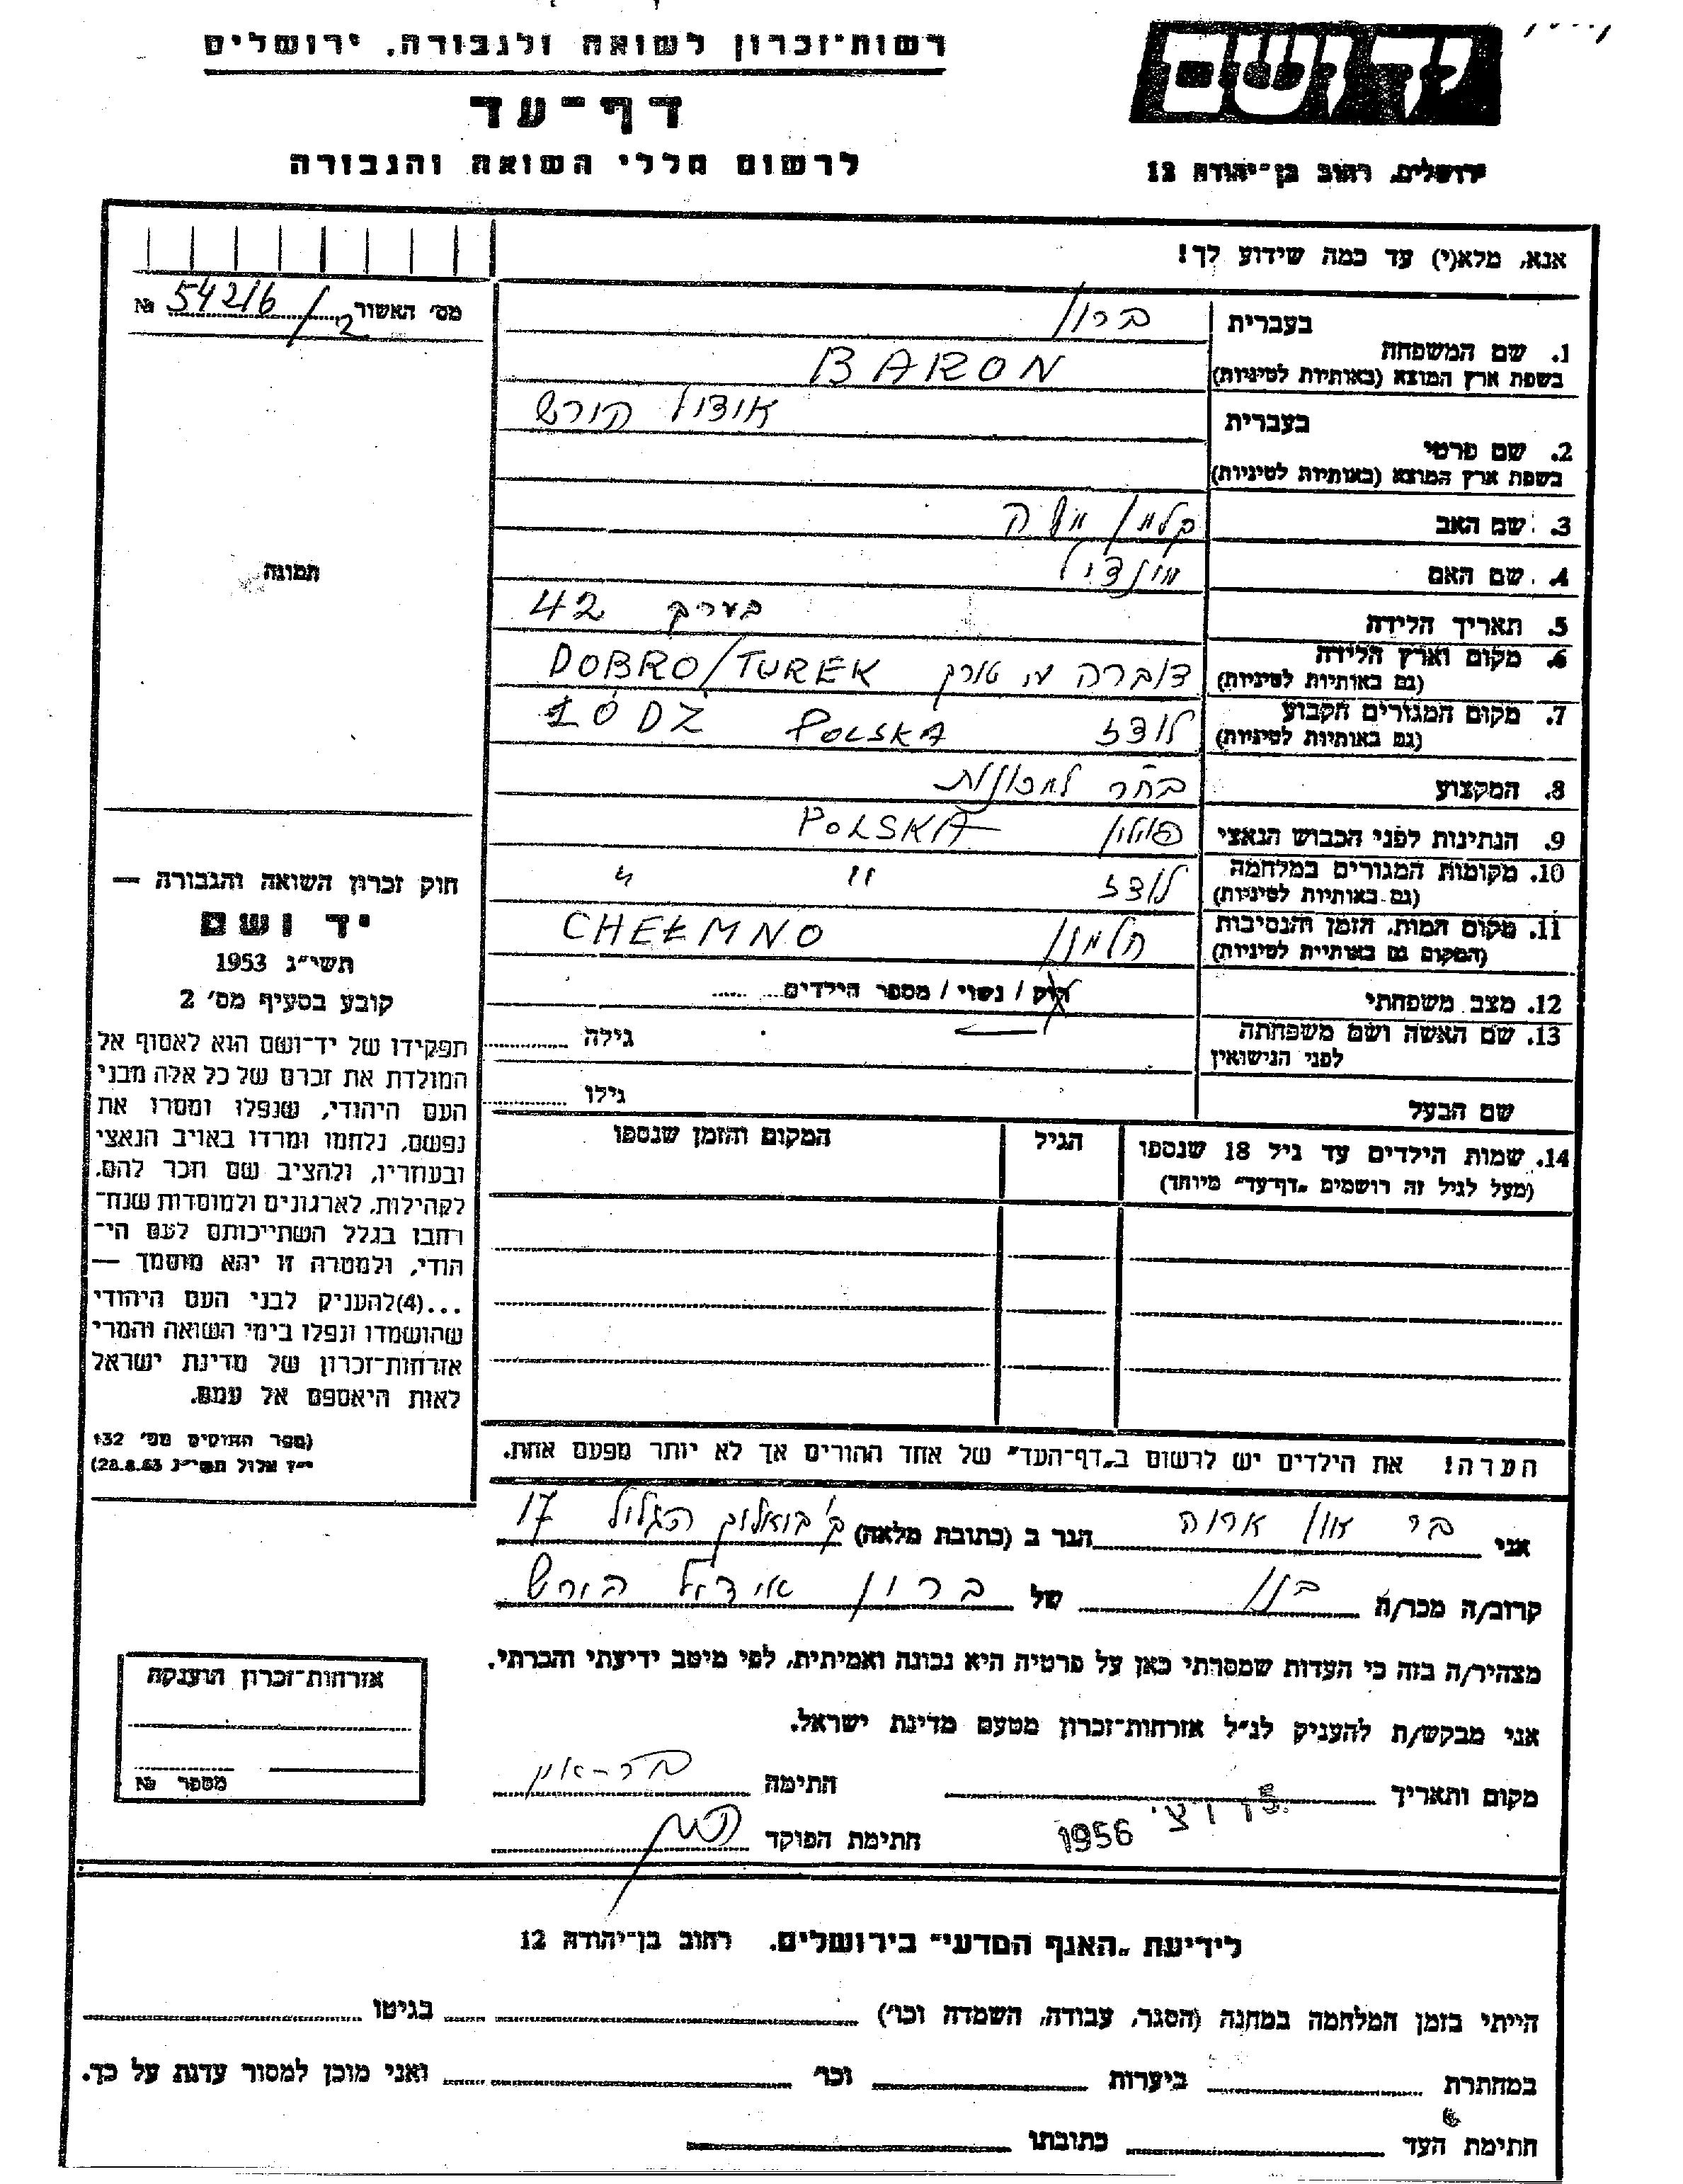 רשות־זכרון לשואה ולגבורה, ירושלים
דף־עד
לרשום חללי השואה והגבורה
יד ושם
ירושלים, רחוב בן־יהודה 12
אנא, מלא(י) עד כמה שידוע לך!
מס׳ האשור 54216/2 №
בעברית ברון
1. שם המשפחה
בשפת ארץ המוצא (באותיות לטיניות) BARON
בעברית הורש
2. שם פרטי
בשפת ארץ המוצא (באותיות לטיניות)
3. שם האב קלמן משה
4. שם האם
5. תאריך הלידה בערך 42
6. מקום וארץ הלידה
(גם באותיות לטיניות) דוברה טורק DOBRO/TUREK
7. מקום המגורים הקבוע
(גם באותיות לטיניות) לודז ŁÓDŹ POLSKA
8. המקצוע
9. הנתינות לפני הכבוש הנאצי פולין POLSKA
10. מקומות המגורים במלחמה
(גם באותיות לטיניות) לודז " "
11. מקום המות, הזמן והנסיבות
(המקום גם באותיות לטיניות) חלמנו CHEŁMNO
12. מצב משפחתי רוק / נשוי / מספר הילדים
13. שם האשה ושם משפחתה
לפני הנישואין גילה
שם הבעל גילו
14. שמות הילדים עד גיל 18 שנספו הגיל המקום והזמן שנספו
(מעל לגיל זה רושמים „דף־עד״ מיוחד)
הערה! את הילדים יש לרשום ב„דף־העד״ של אחד ההורים אך לא יותר מפעם אחת.
תמונה
חוק זכרון השואה והגבורה —
יד ושם
תשי״ג 1953
קובע בסעיף מס׳ 2
תפקידו של יד־ושם הוא לאסוף אל
המולדת את זכרם של כל אלה מבני
העם היהודי, שנפלו ומסרו את
נפשם, נלחמו ומרדו באויב הנאצי
ובעוזריו, ולהציב שם וזכר להם,
לקהילות, לארגונים ולמוסדות שנח־
רבו בגלל השתייכותם לעם הי־
הודי, ולמטרה זו יהא מוסמך —
...(4) להעניק לבני העם היהודי
שהושמדו ונפלו בימי השואה והמרי
אזרחות־זכרון של מדינת ישראל
לאות היאספם אל עמם.
(ספר החוקים מס׳ 132
י״ז אלול תשי״ג 28.8.53)
אני בר און אריה הגר ב (כתובת מלאה) הגליל 17
קרוב/ה מכר/ה בנו של ברון הורש
מצהיר/ה בזה כי העדות שמסרתי כאן על פרטיה היא נכונה ואמיתית, לפי מיטב ידיעתי והכרתי.
אני מבקש/ת להעניק לנ״ל אזרחות־זכרון מטעם מדינת ישראל.
מקום ותאריך 1956 חתימה בר-און
חתימת הפוקד
אזרחות־זכרון הוענקה
מספר №
לידיעת „האגף המדעי״ בירושלים, רחוב בן־יהודה 12
הייתי בזמן המלחמה במחנה (הסגר, עבודה, השמדה וכו׳) בגיטו
במחתרת ביערות וכו׳ ואני מוכן למסור עדות על כך.
חתימת העד כתובתו